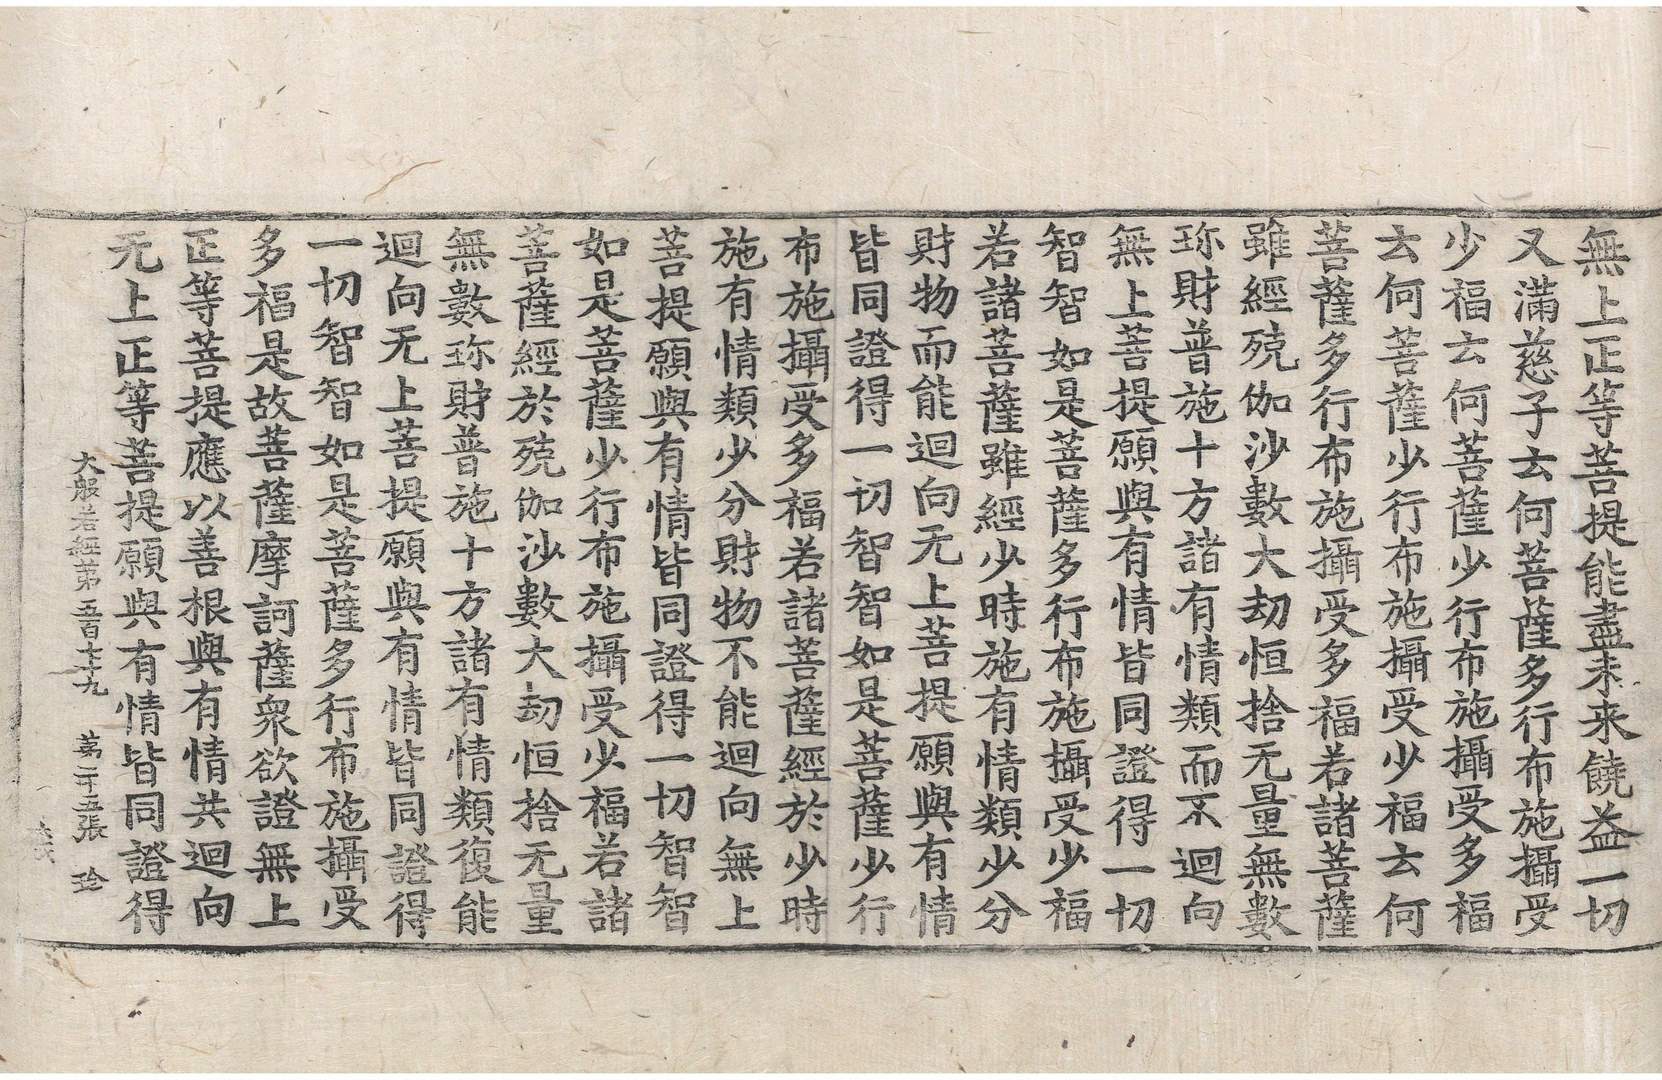 無上正等菩提能盡未来饒益一切
又滿慈子云何菩薩多行布施攝受
少福云何菩薩少行布施攝受多福
云何菩薩少行布施攝受少福云何
菩薩多行布施攝受多福若諸菩薩
雖經殑伽沙數大劫恒捨无量無數
珎財普施十方諸有情類而不迴向
無上菩提願與有情皆同證得一切
智智如是菩薩多行布施攝受少福
若諸菩薩雖經少時施有情類少分
財物而能迴向无上菩提願與有情
皆同證得一切智智如是菩薩少行
布施攝受多福若諸菩薩經於少時
施有情類少分財物不能迴向無上
菩提願與有情皆同證得一切智智
如是菩薩少行布施攝受少福若諸
菩薩經於殑伽沙數大劫恒捨无量
無數珎財普施十方諸有情類復能
迴向无上菩提願與有情皆同證得
一切智智如是菩薩多行布施攝受
多福是故菩薩摩訶薩衆欲證無上
正等菩提應以善根與有情共迴向
无上正等菩提願與有情皆同證得
大般若經苐五百七十九 苐二十五張 珍